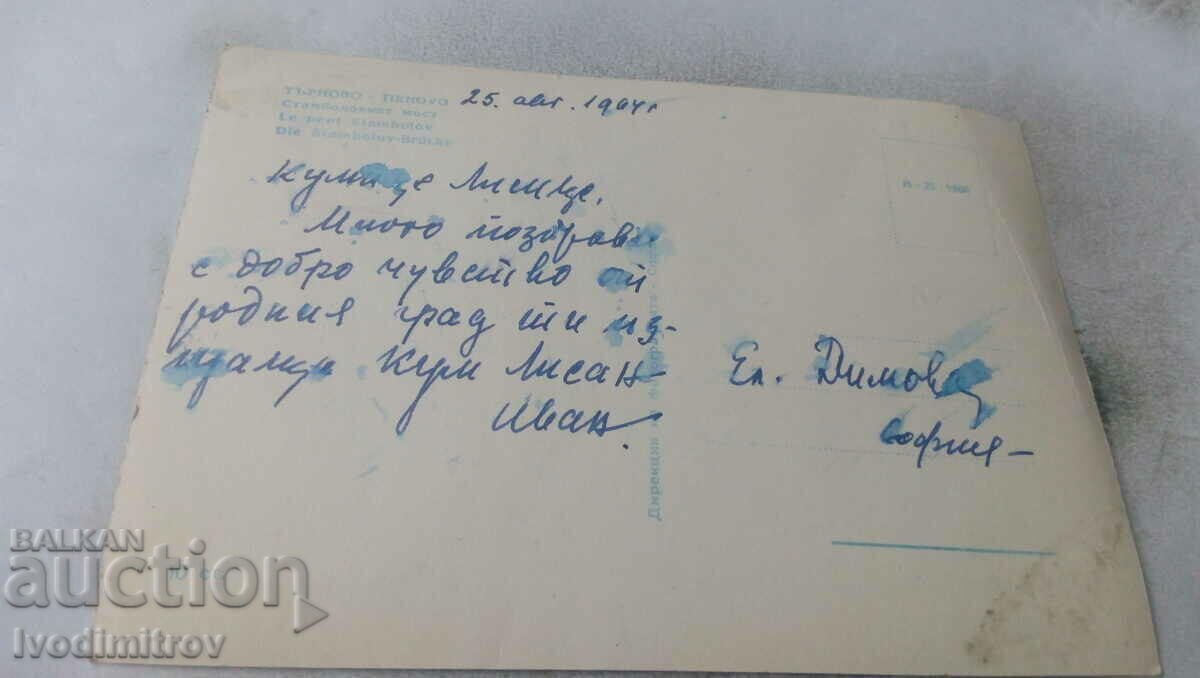 ТЪРНОВО - TIRNOVO
Стамболовият мост
Le pont Stambolov
Die Stambolov-Brücke
25. авг. 1964 г
Кумице Лисице,
Много поздрави
с добро чувство от
родния град ти из-
праща Кум Лисан
Иван.
Ел. Димова
София -
Дирекция
BALKAN
auction
Ivodimitrov